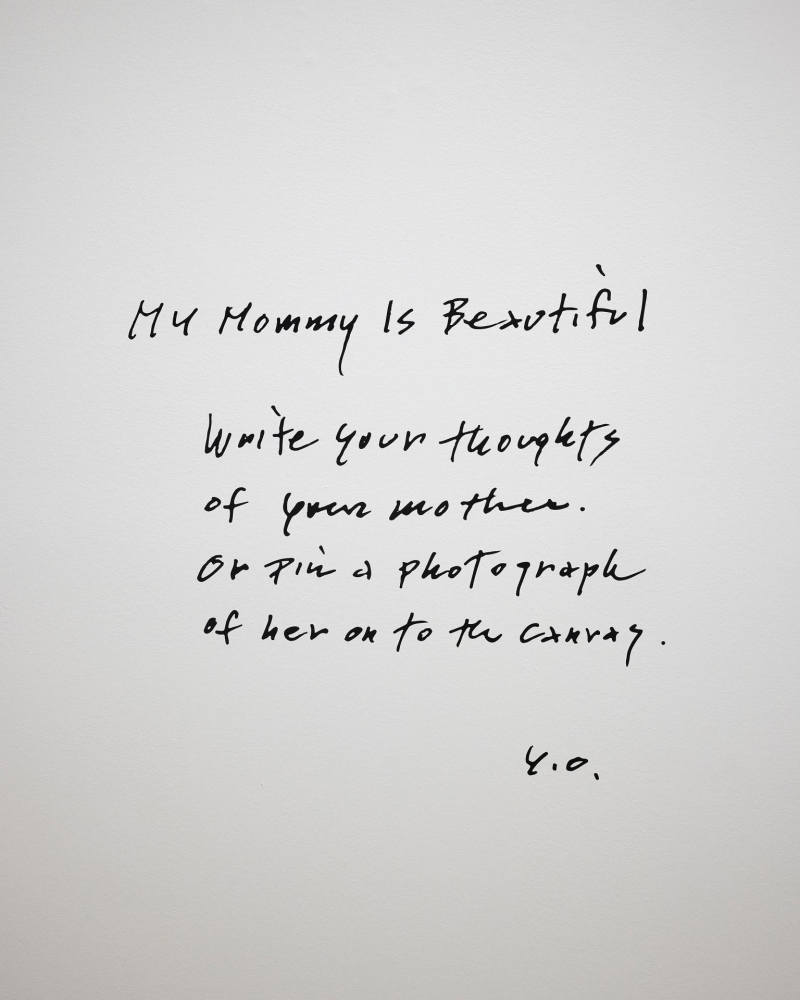 My Mommy Is Beautiful
Write your thoughts
of your mother.
Or pin a photograph
of her on to the canvas.
Y.O.